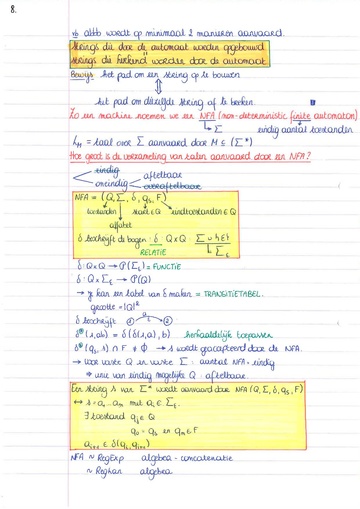 8.
vb abbb wordt op minimaal 2 manieren aanvaard.
strings die door de automaat worden opgebouwd
strings die herkend worden door de automaat
Bewijs: het pad om een string op te bouwen
het pad om diezelfde string af te breken.
Zo een machine noemen we een NFA (non-deterministic finite automaton)
Σ eindig aantal toestanden
L_M = taal over Σ aanvaard door M ≤ (Σ*)
Hoe groot is de verzameling van talen aanvaard door een NFA?
eindig aftelbaar
oneindig overaftelbaar
NFA = (Q, Σ, δ, q_s, F)
toestanden start ∈ Q eindtoestanden ∈ Q
alfabet
δ beschrijft de bogen: δ: Q x Q Σ ∪ {ε}
RELATIE Σ_ε
δ: Q x Q → P(Σ_ε) = FUNCTIE
δ: Q x Σ_ε → P(Q)
→ je kan een tabel van δ maken = TRANSITIETABEL.
grootte = |Q|²
δ beschrijft
δ*(s,ab) = δ(δ(s,a), b) herhaaldelijk toepassen
δ*(q_s, s) ∩ F ≠ ϕ → s wordt geaccepteerd door de NFA.
→ voor vaste Q en vaste Σ: aantal NFA: eindig
⇒ unie van eindig mogelijke Q: aftelbaar.
Een string s van Σ* wordt aanvaard door NFA (Q, Σ, δ, q_s, F)
↔ s = a_1 .. a_n met a_i ∈ Σ_ε
∃ toestand q_i ∈ Q
q_0 = q_s en q_n ∈ F
a_i+1 ∈ δ(q_i, q_i+1)
NFA ~ RegExp algebra - concatenatie
~ RegLan algebra